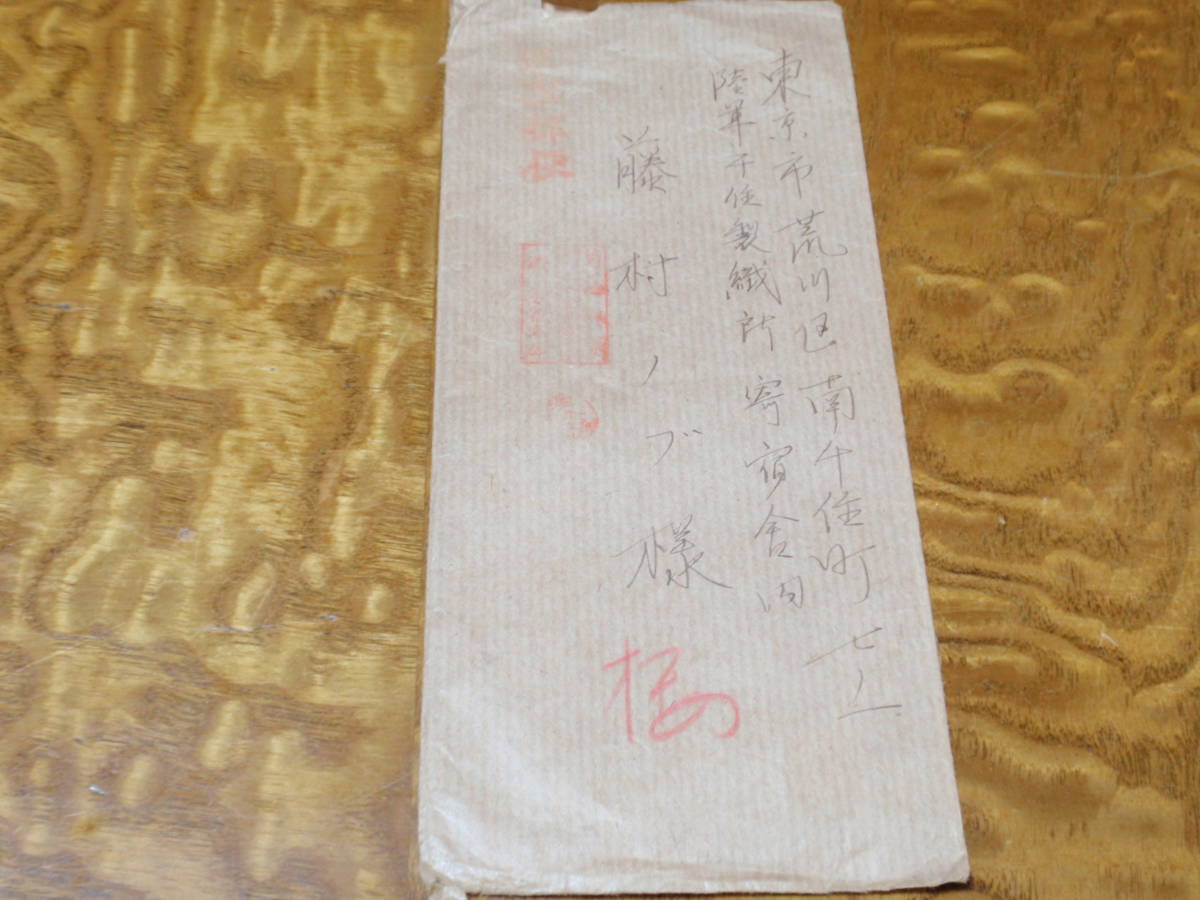 東京市荒川区南千住町七ノ一
陸軍千住製絨所寄宿舎内
藤村ノブ様
桜